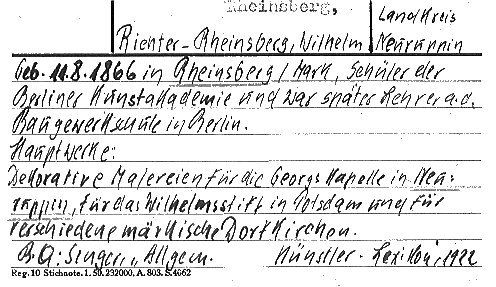 Rheinsberg,
Landkreis
Richter-Rheinsberg, Wilhelm Neuruppin
Geb. 11.8.1866 in Rheinsberg/Mark, Schüler der
Berliner Kunstakademie und war später Lehrer a.d.
Baugewerkschule in Berlin.
Hauptwerke:
Dekorative Malereien für die Georgs Kapelle in Neu-
ruppin, für das Wilhelmsstift in Potsdam und für
verschiedene märkische Dorfkirchen.
B.A: Singer, "Allgem. Künstler-Lexikon", 1922
Reg. 10 Stichnote. 1. 50. 232000. A. 803. S. 4662